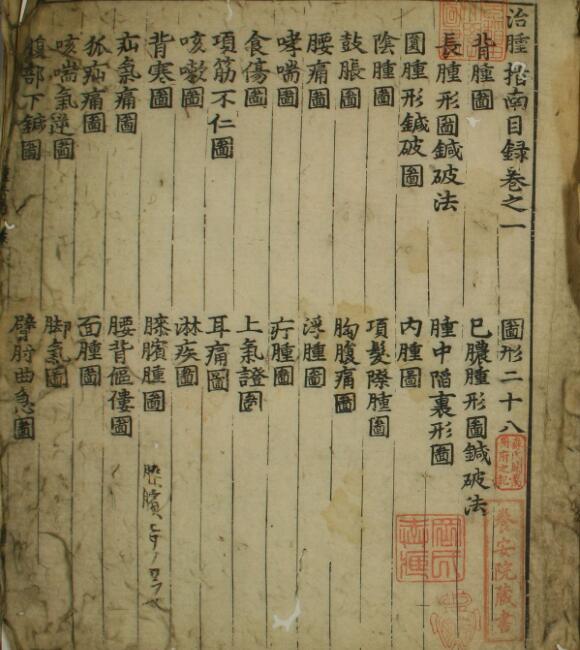 治腫指南目録卷之一 圖形二十八
背腫圖 已膿腫形圖鍼破法
長腫形圖鍼破法 腫中陷裏形圖
圓腫形鍼破圖 內腫圖
陰腫圖 項髮際腫圖
鼓脹圖 胸腹痛圖
腰痛圖 浮腫圖
哮喘圖 疔腫圖
食傷圖 上氣證圖
項筋不仁圖 耳痛圖
咳嗽圖 淋疾圖
背寒圖 膝臏腫圖
疝氣痛圖 腰背傴僂圖
狐疝痛圖 面腫圖
咳喘氣逆圖 脚氣圖
腹部下鍼圖 臂肘曲急圖
養安院藏書